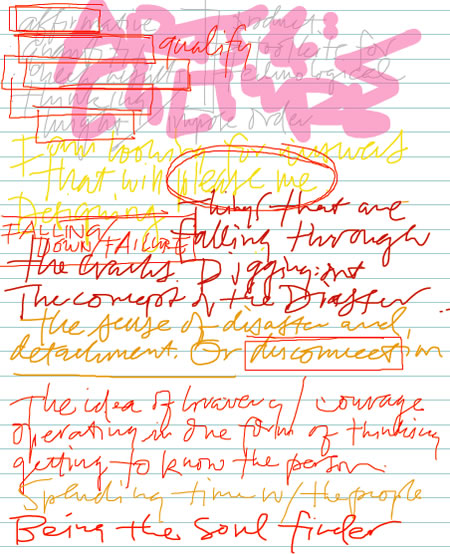 affirmative product
qualify for
technological
thinking
might order
I am looking for answers
that will please me
Designing things that are
FALLING DOWN/FAILURE falling through
the cracks Digging into
The concept of the Disaster
the sense of disaster and
detachment. Or disconnection
The idea of bravery / courage
operating in one form of thinking
getting to know the person.
Spending time w/ the people
Being the soul finder